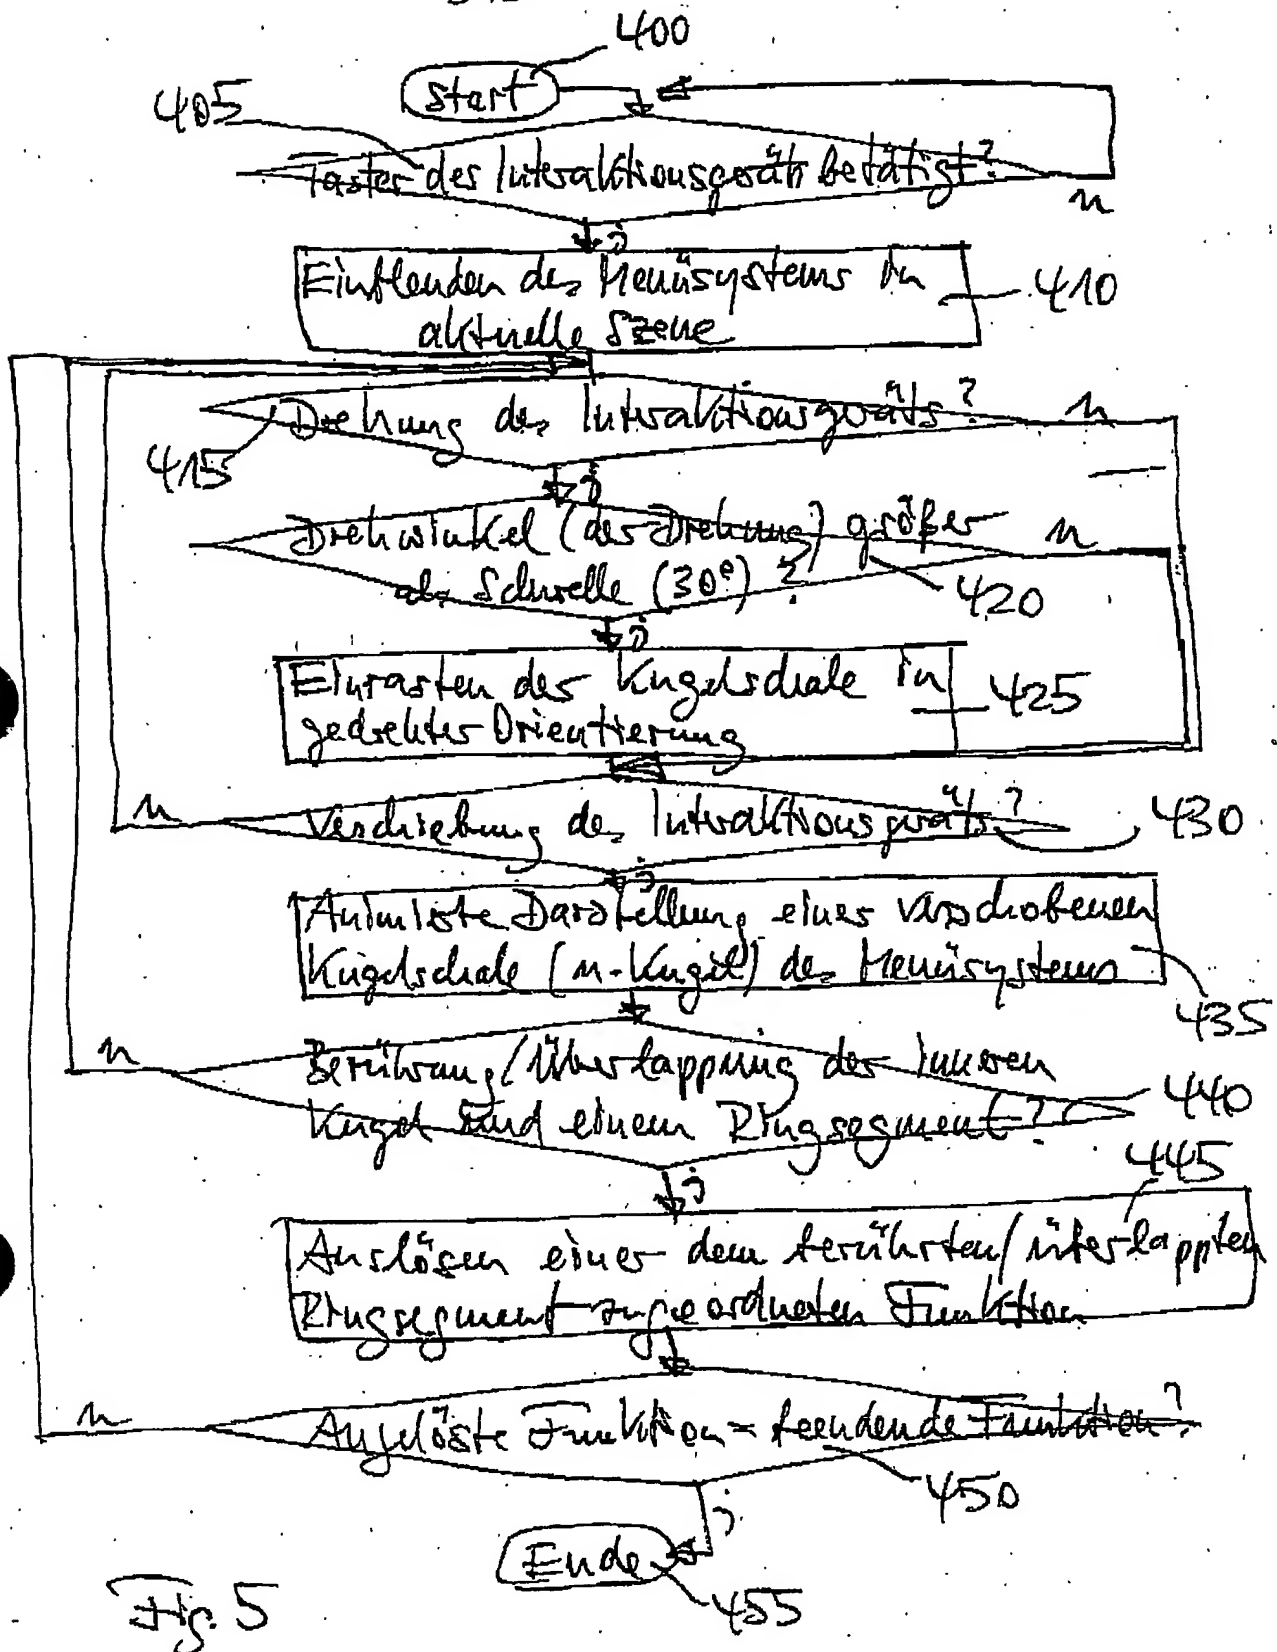 400
Start
405
Taster des Interaktionsgeräts betätigt?
n
j
Einblenden des Menüsystems in
aktuelle Szene
410
Drehung des Interaktionsgeräts?
n
415
j
Drehwinkel (der Drehung) größer
als Schwelle (30°)?
n
420
j
Einrasten der Kugelschale in
gedrehter Orientierung
425
n
Verschiebung des Interaktionsgeräts?
430
j
Animierte Darstellung einer verschobenen
Kugelschale (m-Kugel) des Menüsystems
435
n
Berührung/Überlappung der inneren
Kugel und einem Ringsegment?
440
j
445
Auslösen einer dem berührten/überlappten
Ringsegment zugeordneten Funktion
n
Ausgelöste Funktion = beendende Funktion?
450
j
Ende
455
Fig. 5